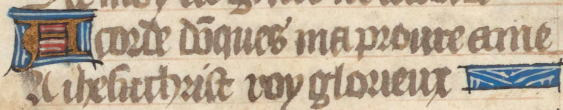 Acorde dōques ma proure ame
A ihesucrist roy glorieux